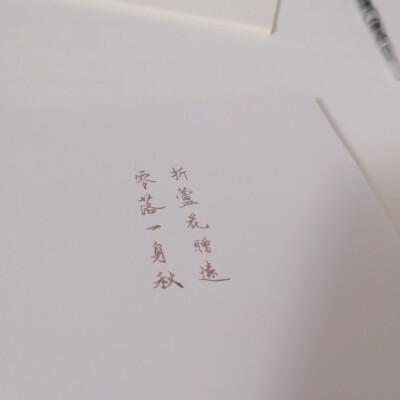 折蘆花贈遠
零落一身秋